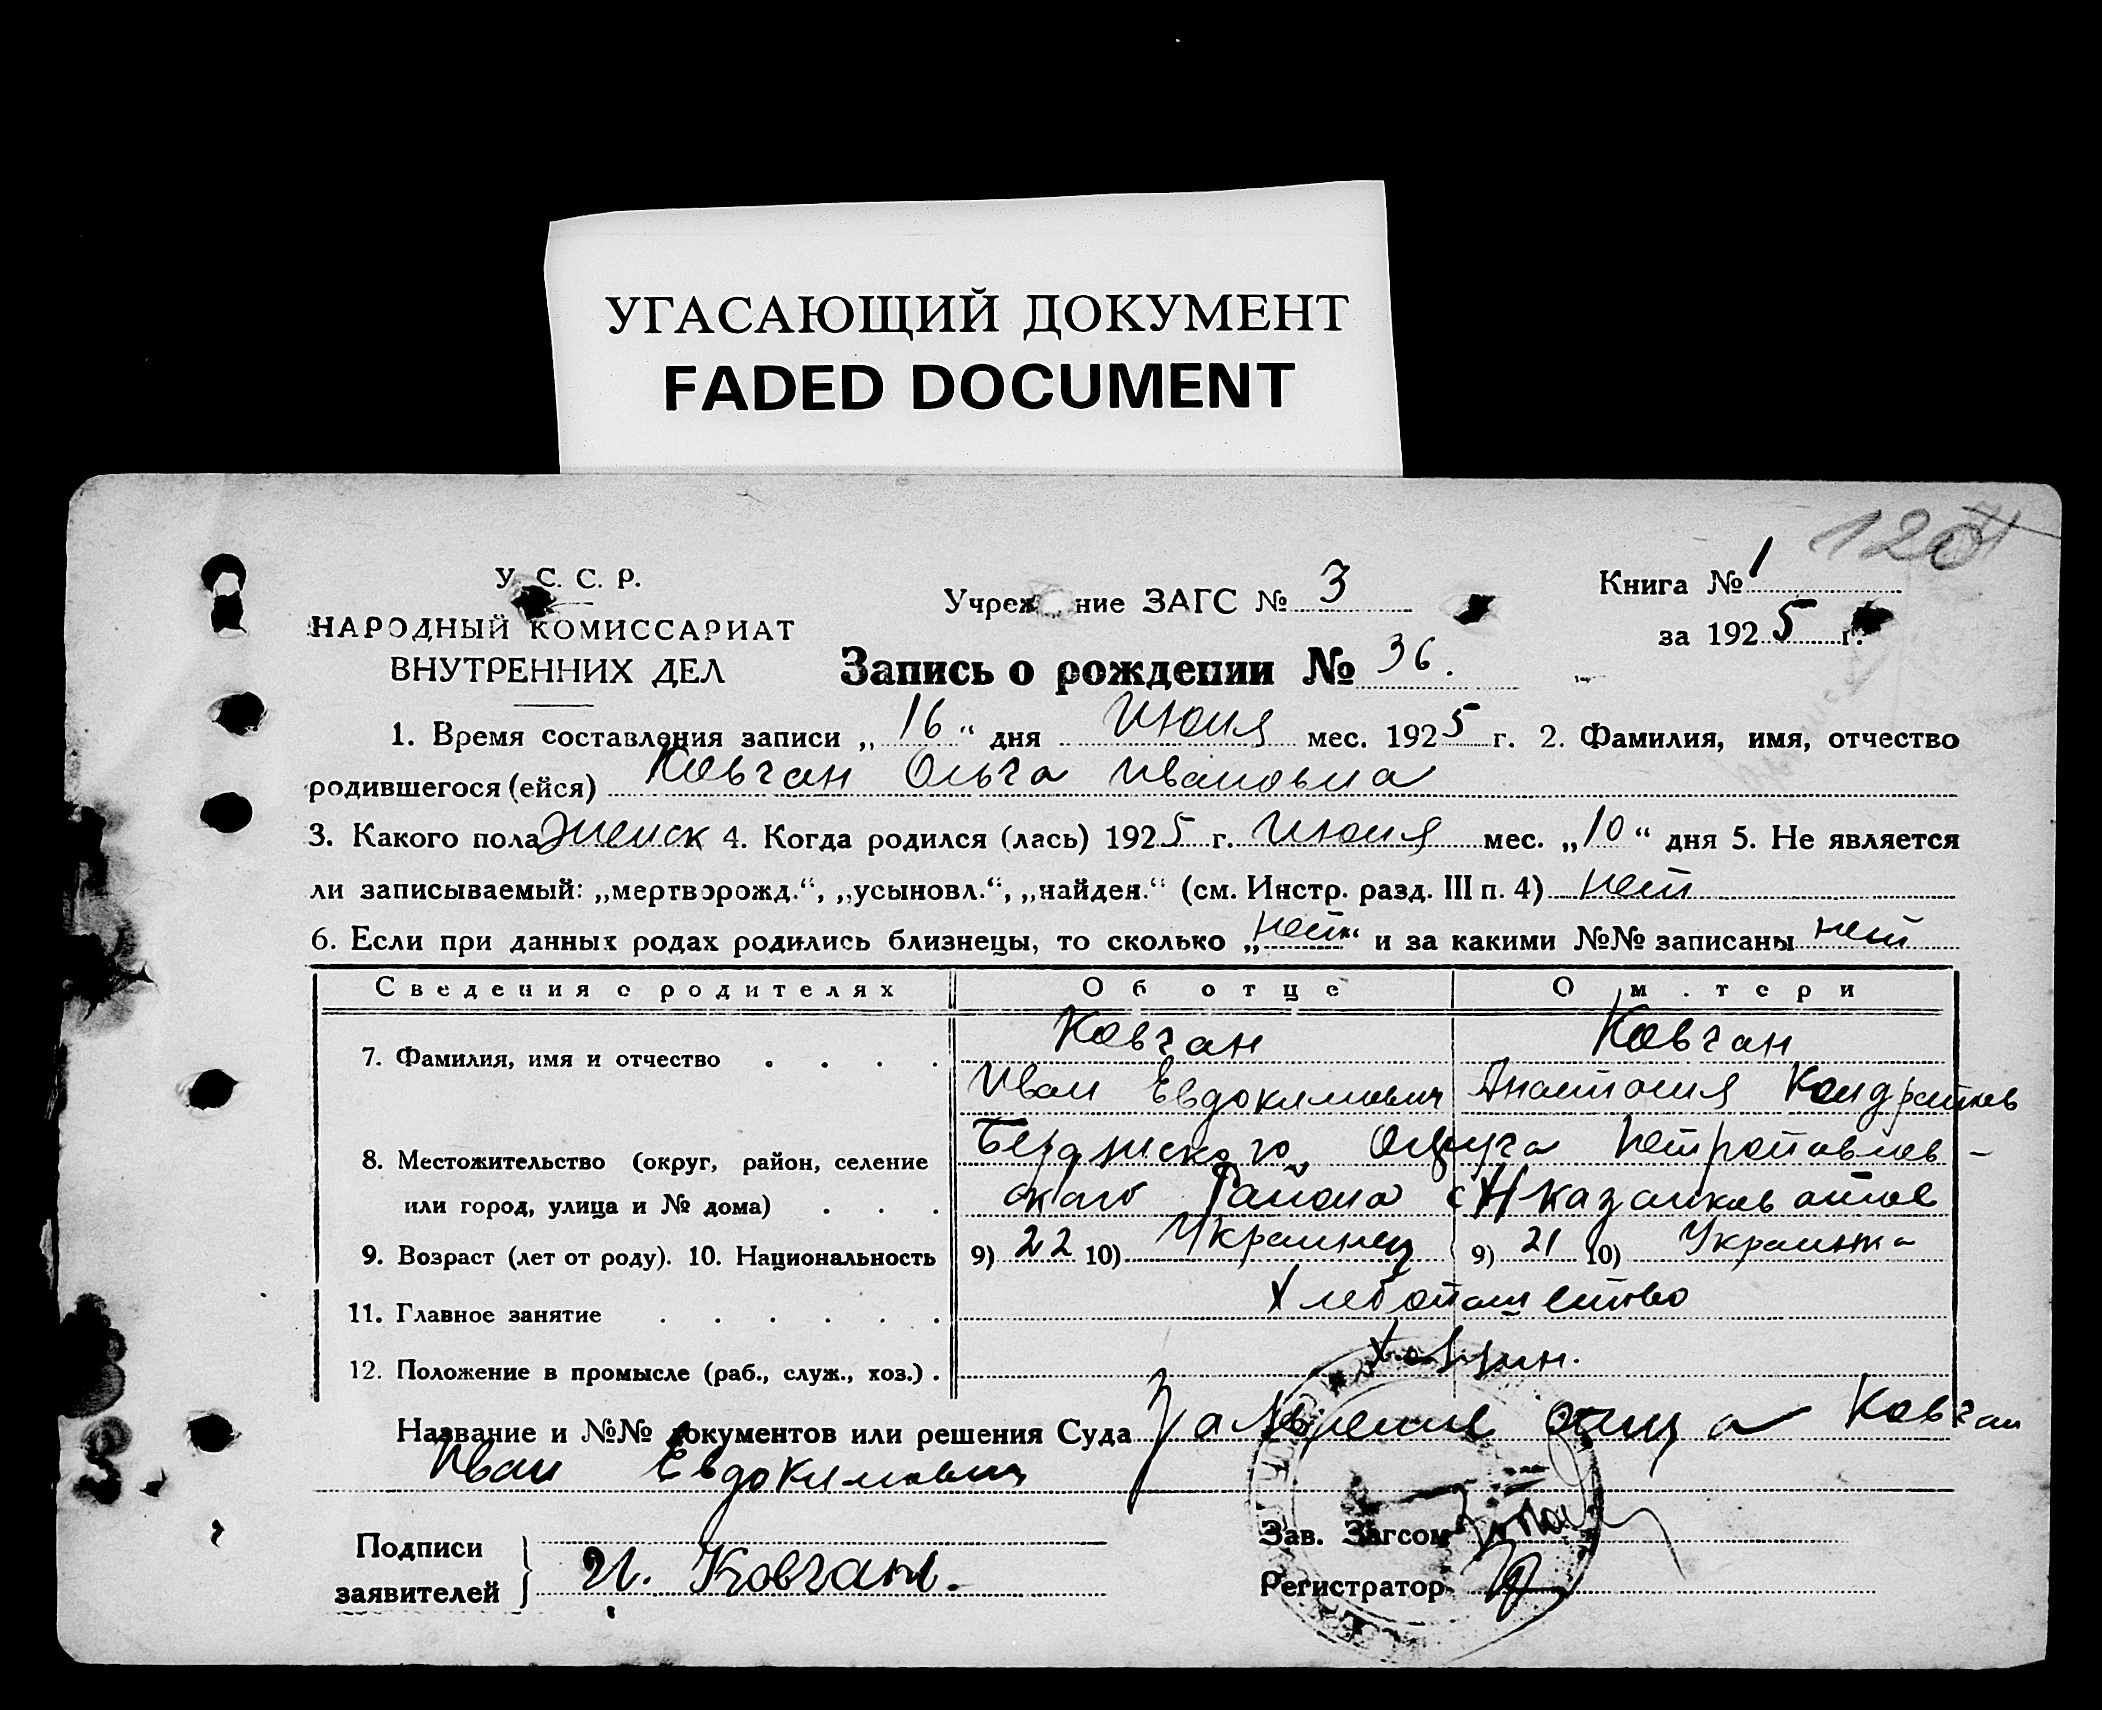 УГАСАЮЩИЙ ДОКУМЕНТ
FADED DOCUMENT
120
У. С. С. Р.
НАРОДНЫЙ КОМИССАРИАТ
ВНУТРЕННИХ ДЕЛ
Учреж ние ЗАГС № 3
Книга № 1
за 1925 г.
Запись о рождении № 36.
1. Время составления записи „16“ дня Июня мес. 1925 г. 2. Фамилия, имя, отчество
родившегося (ейся) Ковган Ольга Ивановна
3. Какого пола Женск 4. Когда родился (лась) 1925 г. Июня мес. „10“ дня 5. Не является
ли записываемый: „мертворожд.“, „усыновл.“, „найден.“ (см. Инстр. разд. III п. 4) нет
6. Если при данных родах родились близнецы, то сколько „нет“ и за какими №№ записаны нет
Сведения о родителях Об отце О м . тери
7. Фамилия, имя и отчество . . . . Ковган Ковган
Иван Евдокимович Анатолия Кондратьев
8. Местожительство (округ, район, селение Бердянского Округа Петропавлов-
или город, улица и № дома) . . . ского Района
9. Возраст (лет от роду). 10. Национальность 9) 22 10) Украинец 9) 21 10) Украинка
11. Главное занятие . . . . . . Хлебопашество
12. Положение в промысле (раб., служ., хоз.) . Хозяин.
Название и №№ документов или решения Суда Заявление отца Ковган
Иван Евдокимович
Подписи
заявителей И. Ковган.
Зав. Загсом
Регистратор